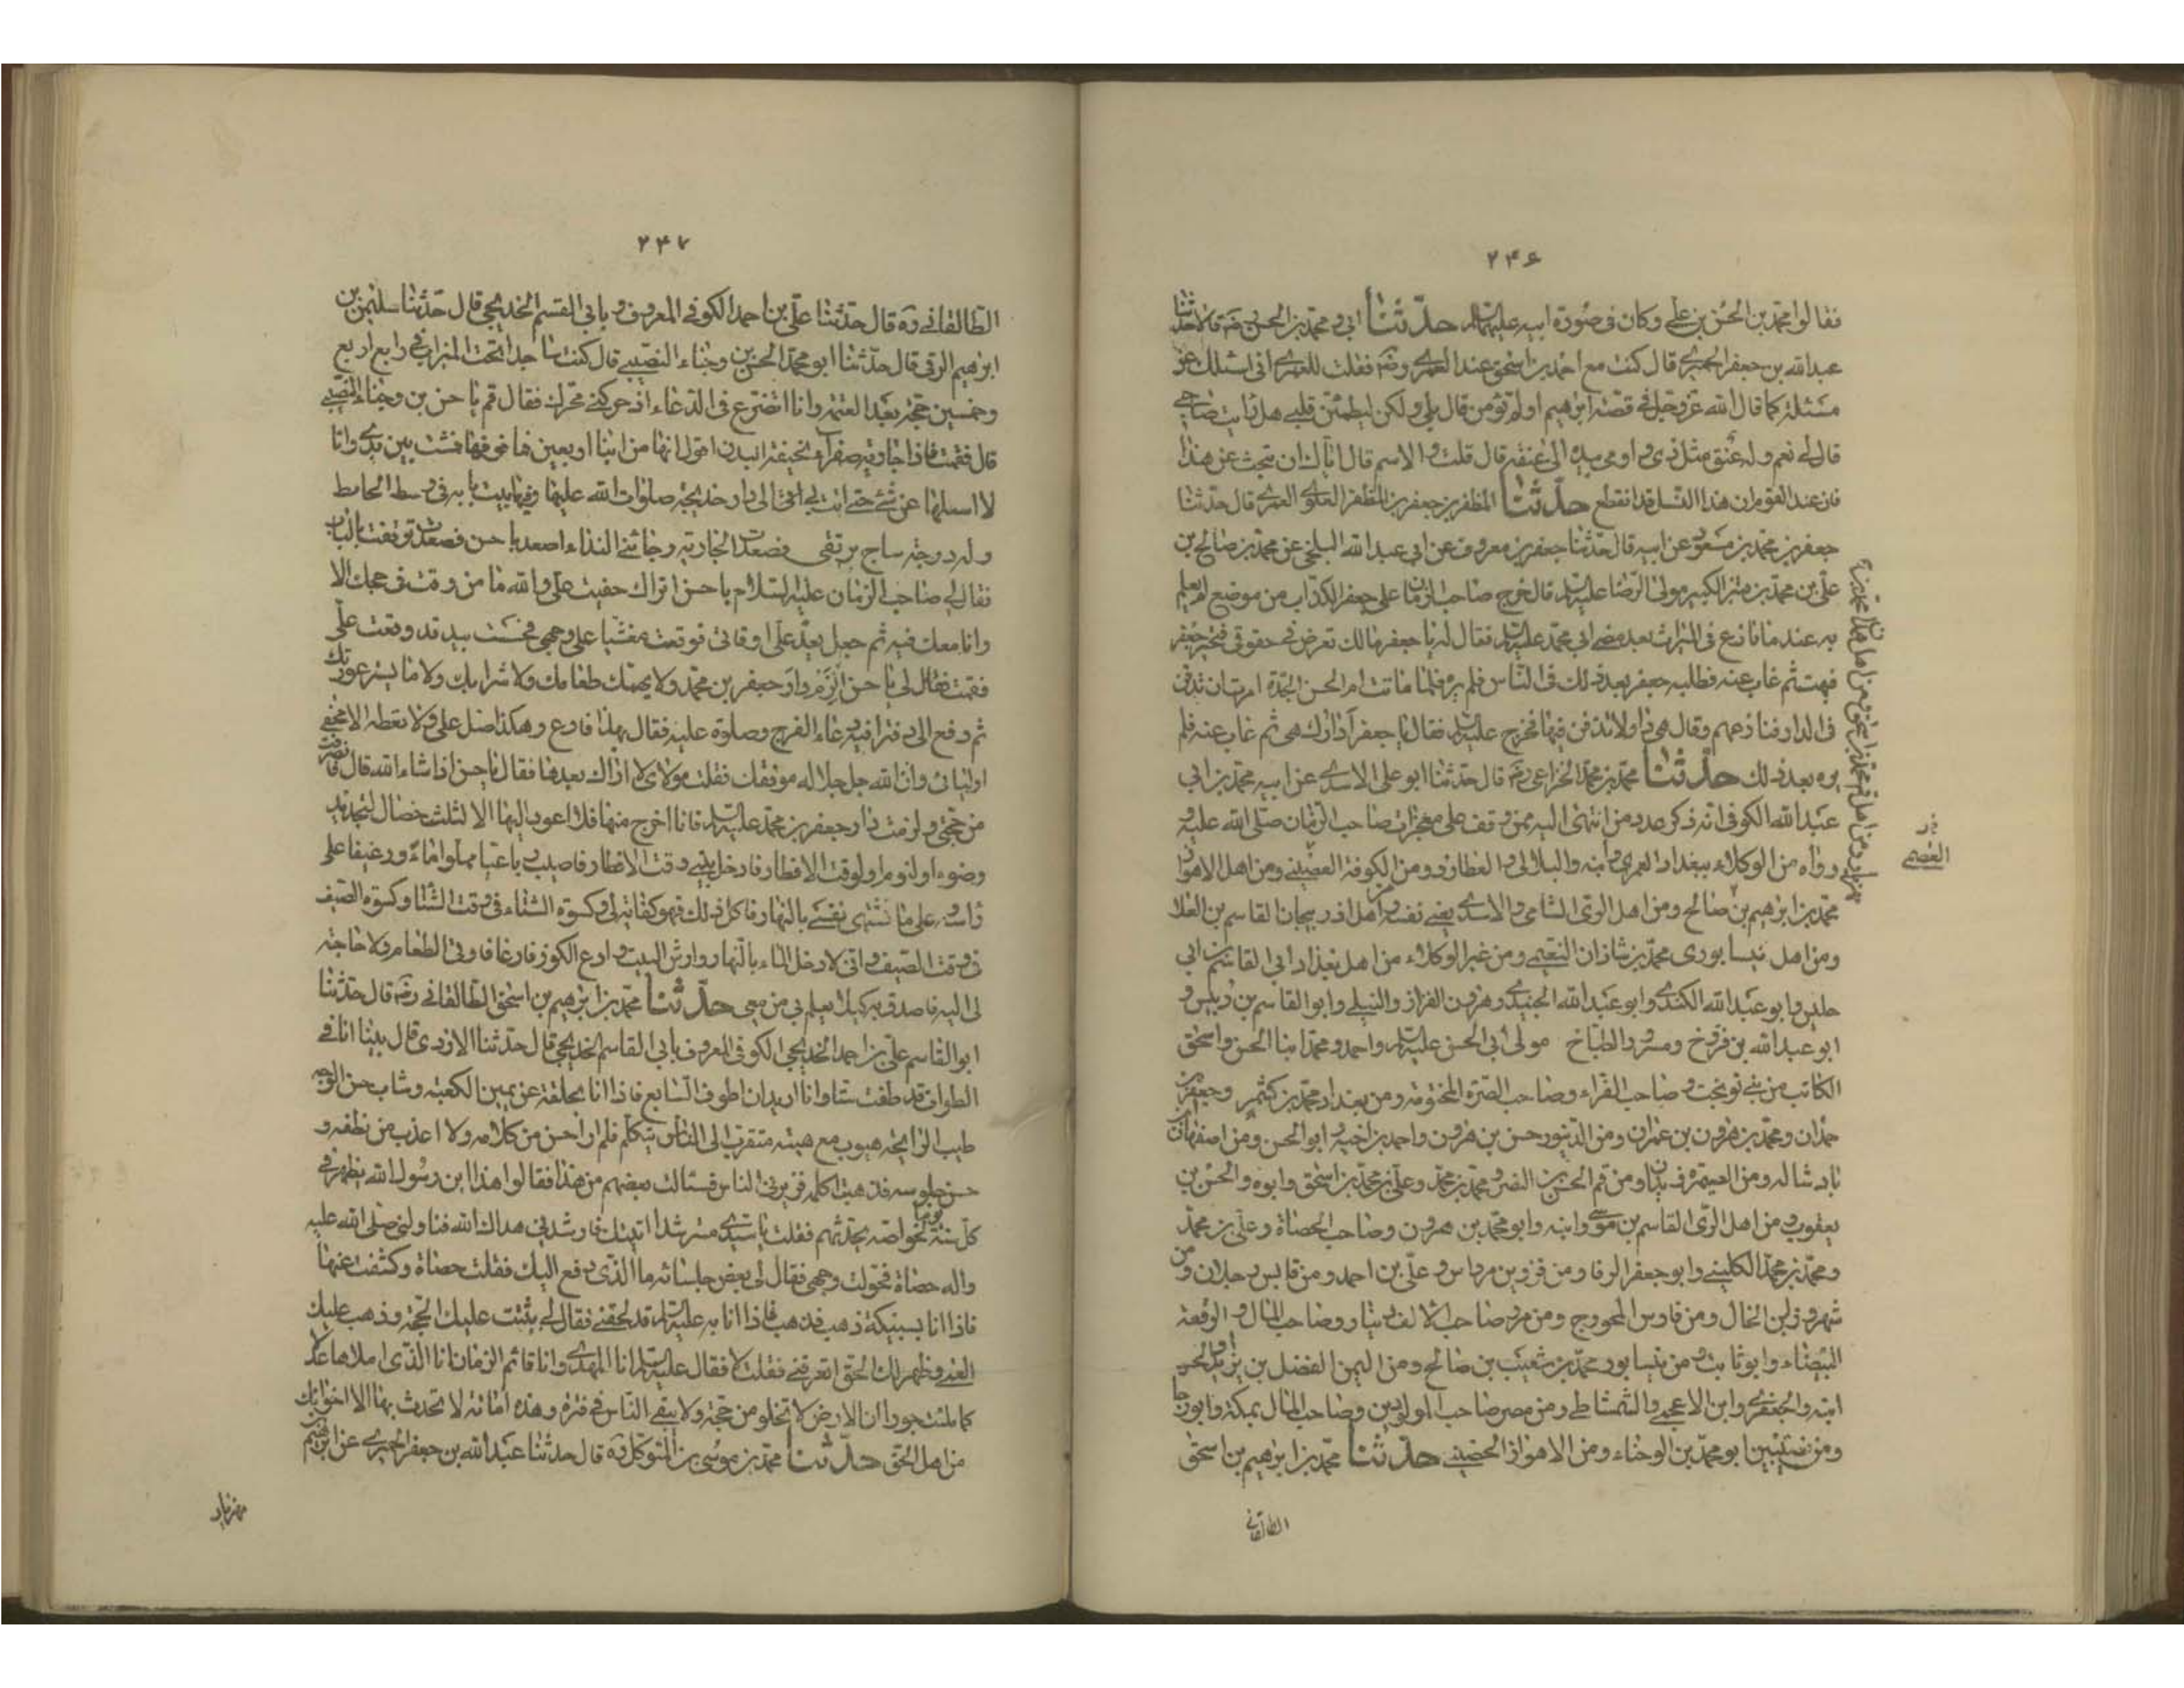 ۲۴۶
فقالوا محمد بن الحسن بن علي وكان في صورة ابيه عليهما السلام حدثنا ابي و محمد بن الحسن رضه قالا حدثنا
عبد الله بن جعفر الحميري قال كنت مع احمد بن اسحق عند العمري رضه فقلت للعمري اني اسئلك عن
مسئلة كما قال الله عز وجل في قصة ابرهيم اولم تؤمن قال بلى ولكن ليطمئن قلبي هل رايت صاحبي
قال لي نعم وله عنق مثل ذي و اومى بيده الى عنقه قال قلت والاسم قال اياك ان تبحث عن هذا
فان عند القوم ان هذا النسل قد انقطع حدثنا المظفر بن جعفر بن المظفر العلوي العمري قال حدثنا
جعفر بن محمد بن مسعود عن ابيه قال حدثنا جعفر بن معروف عن ابي عبد الله البلخي عن محمد بن صالح بن
علي بن محمد بن قنبر الكبير مولى الرضا عليه السلام قال خرج صاحب الزمان على جعفر الكذاب من موضع لم يعلم
به عند ما نازع في الميراث بعد مضي ابي محمد عليه السلام فقال له يا جعفر مالك تعرض في حقوقي فتحير جعفر
فبهت ثم غاب عنه فطلبه جعفر بعد ذلك في الناس فلم يره فلما ماتت ام الحسن الجدة امرت ان تدفن
في الدار فنازعهم وقال هي داري لا تدفن فيها فخرج عليه السلام فقال يا جعفر ادارك هي ثم غاب عنه فلم
يره بعد ذلك حدثنا محمد بن محمد الخزاعي رضه قال حدثنا ابو علي الاسدي عن ابيه محمد بن ابي
عبد الله الكوفي انه ذكر عدد من انتهى اليه ممن وقف على معجزات صاحب الزمان صلى الله عليه و
ورآه من الوكلاء ببغداد العمري و ابنه والبلالي و العطار و ومن الكوفة العصمي ومن اهل الاهواز
محمد بن ابرهيم بن صالح ومن اهل الري الشامي و الاسدي يعني نفسه ومن اهل اذربيجان القاسم بن العلا
ومن اهل نيسابوري محمد بن شاذان النعيمي ومن غير الوكلاء من اهل بغداد ابي القاسم بن ابي
حلين وابو عبد الله الكندي وابو عبد الله الجنيدي وهرون القزاز والنيلي وابو القاسم بن دبيس و
ابو عبد الله بن فروخ ومسرور الطباخ مولى ابي الحسن عليه السلام واحمد ومحمد ابنا الحسن واسحق
الكاتب من بني نوبخت و صاحب الفراء وصاحب الصرة المختومة ومن همدان محمد بن كشمر وجعفر بن
حمدان و محمد بن هرون بن عمران ومن الدينور حسن بن هرون واحمد بن اخيه و ابو الحسن ومن اصفهان ابن
بادشاله ومن الصيمرة زيدان ومن قم الحسن بن النضر و محمد بن محمد وعلي بن محمد بن اسحق وابوه والحسن بن
يعقوب و من اهل الري القاسم بن موسى وابنه وابو محمد بن هرون وصاحب الحصاة وعلي بن محمد
ومحمد بن محمد الكليني وابو جعفر الرفا ومن قزوين مرداس و علي بن احمد ومن قابس رجلان و من
شهرزور ابن الخال ومن فارس المحروج ومن مرو صاحب الالف دينار وصاحب المال و الرقعة
البيضاء وابو ثابت و من نيسابور محمد بن شعيب بن صالح ومن اليمن الفضل بن يزيد والحسن
ابنه والجعفري وابن الاعجمي والشمشاطي ومن مصر صاحب المولودين وصاحب المال بمكة وابو رجا
ومن نصيبين ابو محمد بن الوجناء ومن الاهواز الحصيني حدثنا محمد بن ابرهيم بن اسحق
الطالقاني
العصمي
۲۴۷
الطالقاني ره قال حدثنا علي بن احمد الكوفي المعروف بابي القسم الخديجي قال حدثنا سليمن بن
ابرهيم الرقي قال حدثنا ابو محمد الحسن بن وجناء النصيبي قال كنت ساجدا تحت الميزاب في رابع اربع
وخمسين حجة بعد العتمة وانا اتضرع في الدعاء اذ حركني محرك فقال قم يا حسن بن وجناء النصيبي
قال فقمت فاذا جارية صفراء نحيفة البدن اقول انها من ابنا اربعين فما فوقها فمشت بين يدي وانا
لا اسئلها عن شئ حتى اتت بي الى دار خديجة صلوات الله عليها وفيها بيت بابه في وسط الحايط
وله درجة ساج يرتقى فصعدت الجارية وجائني النداء اصعد يا حسن فصعدت فوقفت بالباب
فقال لي صاحب الزمان عليه السلام يا حسن اتراك خفيت علي والله ما من وقت في حجك الا
وانا معك فيه ثم جعل يعد علي اوقاتي فوقعت مغشيا على وجهي فحسست بيد قد وقعت علي
فقمت فقال لي يا حسن الزم دار جعفر بن محمد ولا يهمنك طعامك ولا شرابك ولا ما يستر عورتك
ثم دفع الي دفترا فيه دعاء الفرج وصلوة عليه فقال بهذا فادع وهكذا صل علي ولا تعطه الا محقي
اوليائي وان الله جل جلاله موفقك فقلت مولاي لا اراك بعدها فقال يا حسن اذا شاء الله قال فانصرفت
من حجتي ولزمت دار جعفر بن محمد عليه السلام فانا اخرج منها فلا اعود اليها الا لثلث خصال لتجديد
وضوء او لنوم او لوقت الافطار فادخل بيتي وقت الافطار فاصيب رباعيا مملوا ماء ورغيفا على
راسه على ما تشتهى نفسي بالنهار فاكل ذلك فهو كفاية لي وكسوة الشتاء في وقت الشتا وكسوة الصيف
في وقت الصيف و اني لادخل الماء بالنهار وارش البيت و ادع الكوز فارغا فاوتى الطعام ولا حاجة
لي اليه فاصدق به كيلا يعلم بي من معي حدثنا محمد بن ابرهيم بن اسحق الطالقاني رضه قال حدثنا
ابو القاسم علي بن احمد الخديجي الكوفي المعروف بابي القاسم الخديجي قال حدثنا الازدي قال بينا انا في
الطواف قد طفت ستا وانا اريد ان اطوف السابع فاذا انا بحلقة عن يمين الكعبة وشاب حسن الوجه
طيب الرايحة هيوب مع هيبته متقرب الى الناس يتكلم فلم ار احسن من كلامه ولا اعذب من نطقه و
حسن جلوسه فذهبت اكلمه فزبرني الناس فسئالت بعضهم من هذا فقالوا هذا ابن رسول الله يظهر في
كل سنة يوما لخواصه يحدثهم فقلت يا سيدي مسترشدا اتيتك فارشدني هداك الله فناولني صلى الله عليه
واله حصاة فحولت وجهي فقال لي بعض جلسائه ما الذي دفع اليك فقلت حصاة وكشفت عنها
فاذا انا بسبيكة ذهب فذهبت فاذا انا به عليه السلام قد لحقني فقال لي ثبتت عليك الحجة وذهب عليك
العمى وظهر لك الحق اتعرفني فقلت لا فقال عليه السلام انا المهدي وانا قائم الزمان انا الذي املاها عدلا
كما ملئت جورا ان الارض لا تخلو من حجة ولا يبقى الناس في فترة وهذه امانة لا تحدث بها الا اخوانك
من اهل الحق حدثنا محمد بن موسى بن المتوكل ره قال حدثنا عبد الله بن جعفر الحميري عن ابرهيم بن
مهزيار